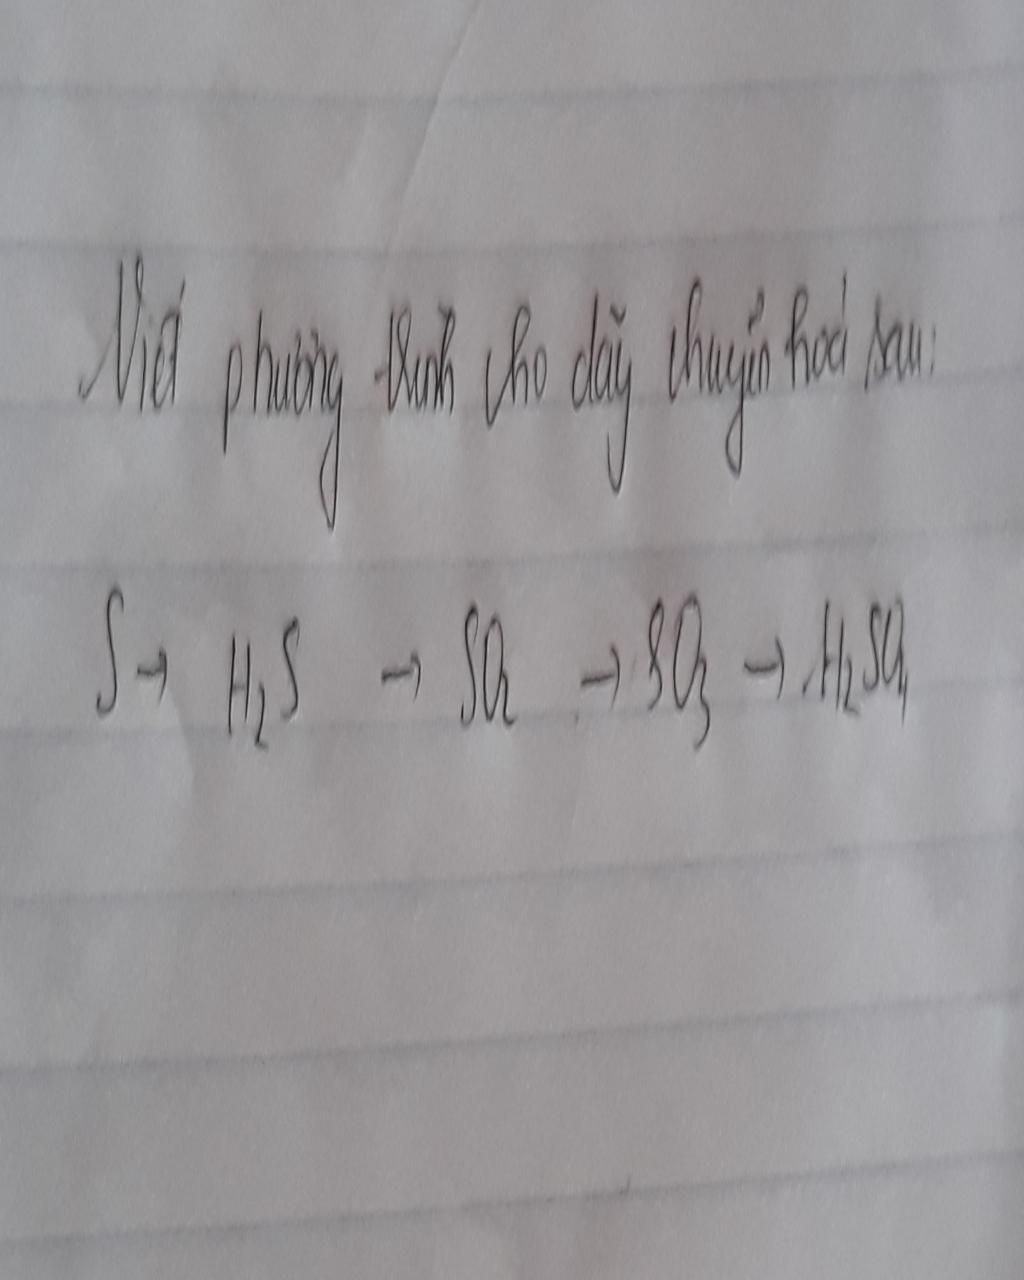 Viết phương trình cho dãy chuyển hoá sau:
S → H₂S → SO₂ → SO₃ → H₂SO₄